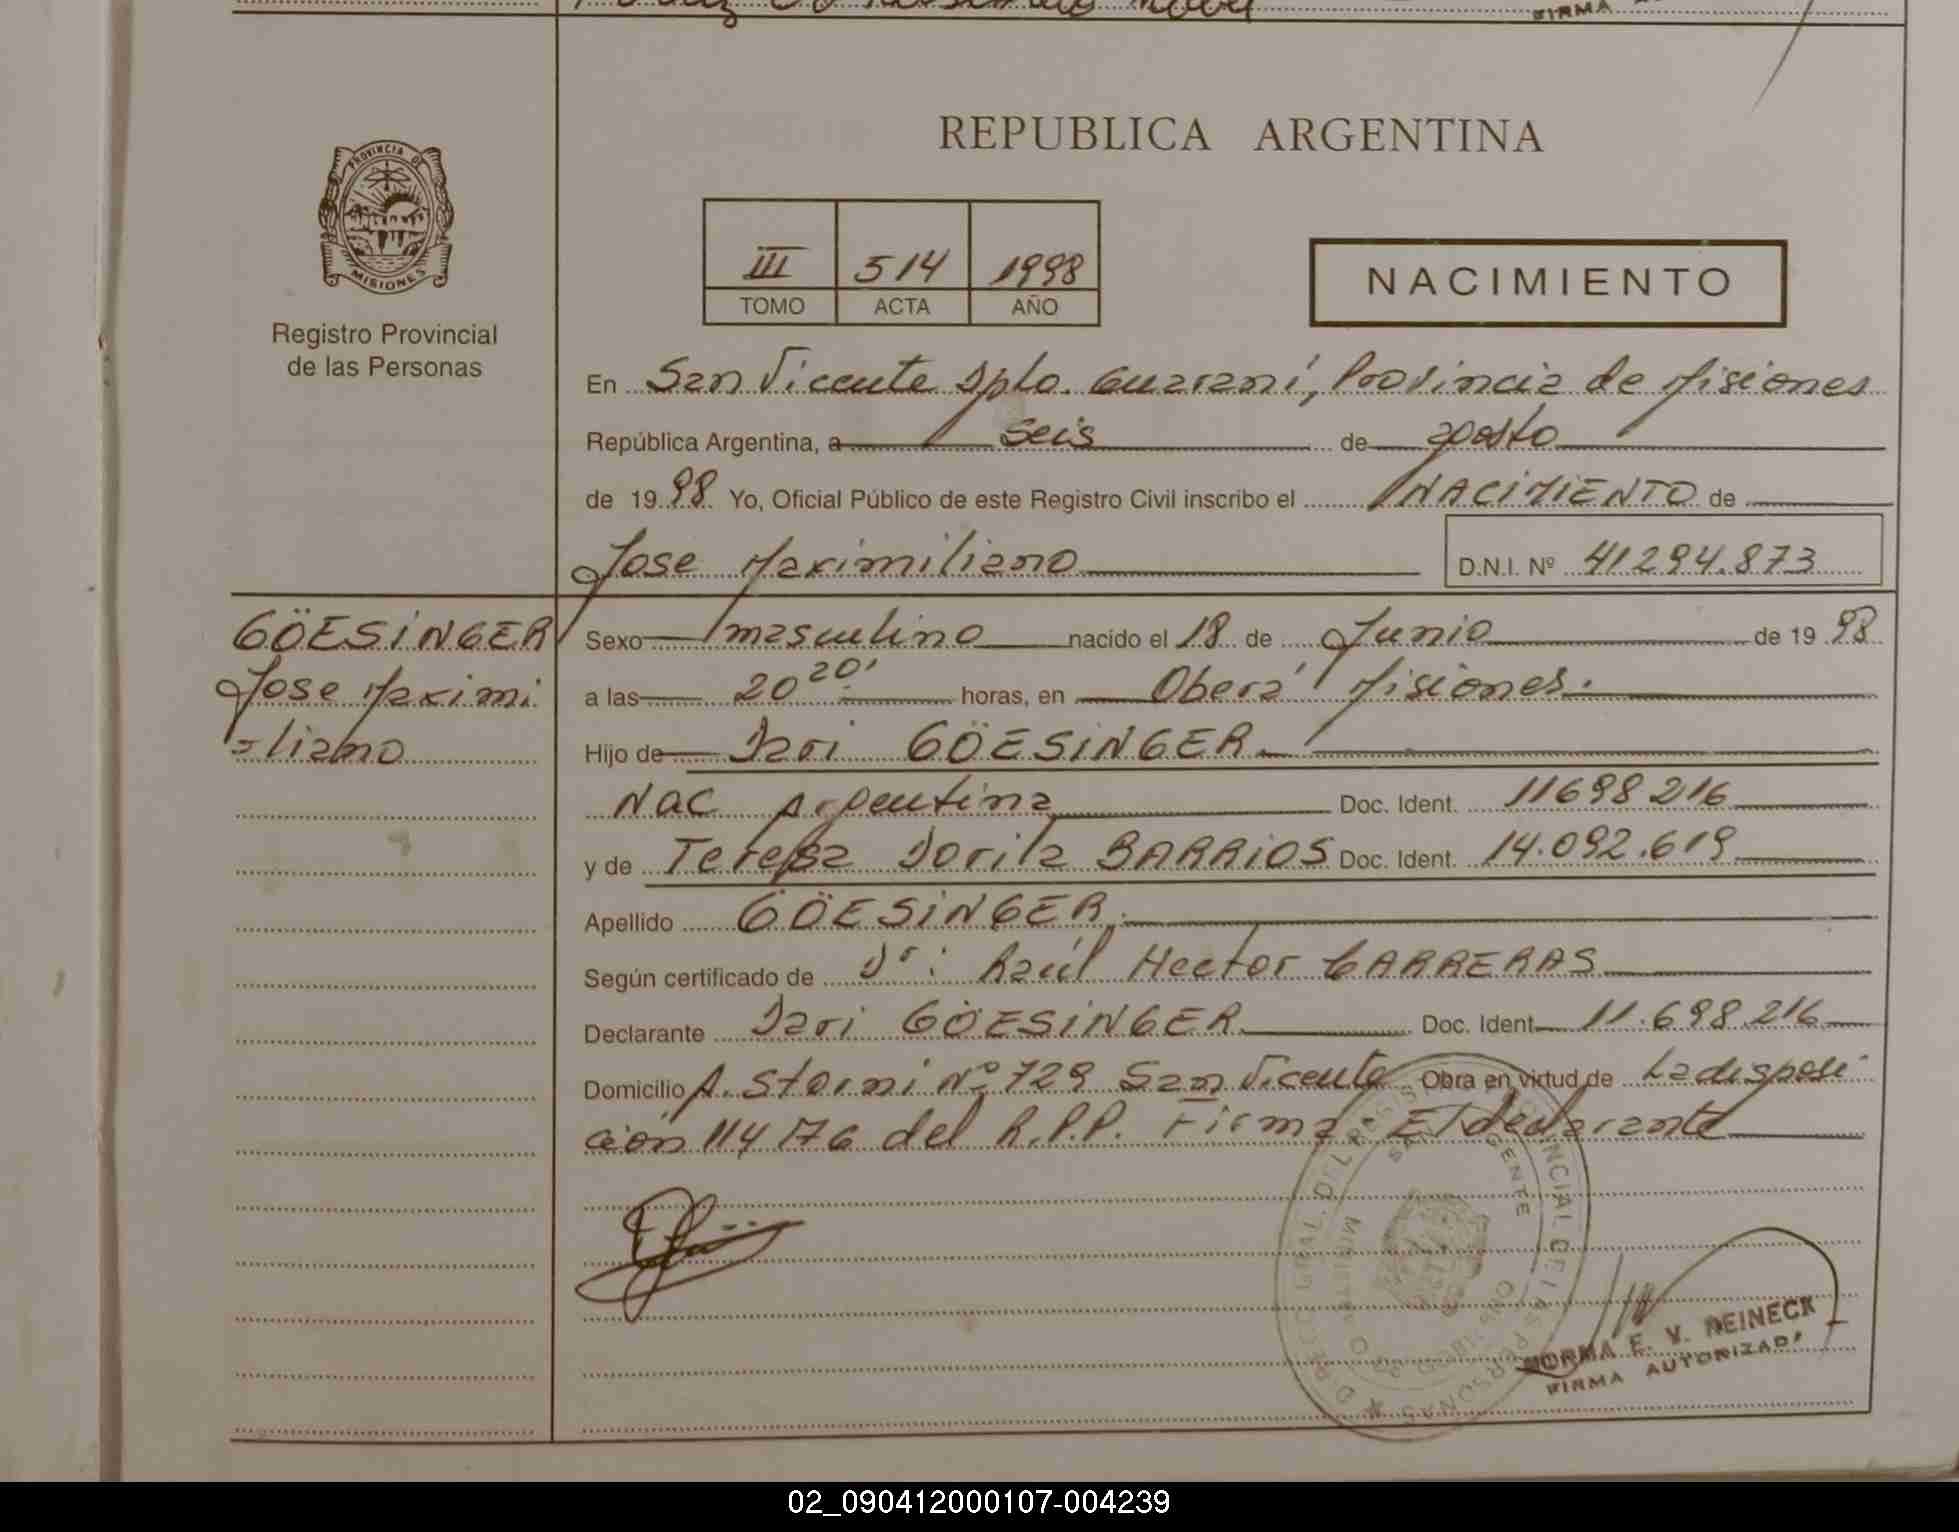 FIRMA
REPUBLICA ARGENTINA
PROVINCIA DE
MISIONES
Registro Provincial
de las Personas
III 514 1998
TOMO ACTA AÑO
NACIMIENTO
En San Vicente Dpto. Guaraní, Provincia de Misiones
República Argentina, a seis de agosto
de 1998 Yo, Oficial Público de este Registro Civil inscribo el NACIMIENTO de
Jose Maximiliano D.N.I. Nº 41294.873
GÖESINGER
Jose Maximi
-liano
Sexo masculino nacido el 18 de Junio de 1998
a las 20 20' horas, en Oberá Misiones.
Hijo de Dari GÖESINGER
Nac Argentina Doc. Ident. 11698216
y de Teresa Dorila BARRIOS Doc. Ident. 14.092.619
Apellido GÖESINGER.
Según certificado de Dr: Raúl Hector CARRERAS
Declarante Dari GÖESINGER Doc. Ident 11.698.216
Domicilio A. Storni Nº 729 San Vicente Obra en virtud de La disposi
ción 114/76 del R.P.P. Firma El declarante
NORMA E. V. REINECK
FIRMA AUTORIZAD
02_090412000107-004239